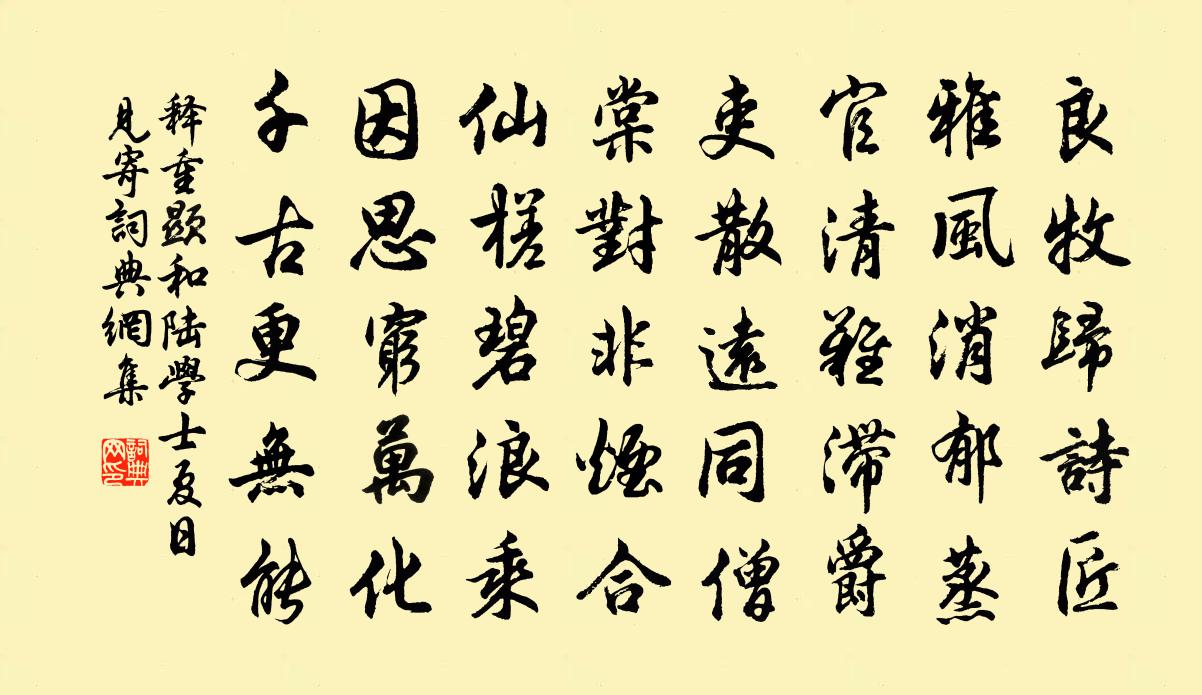 良牧歸詩匠
雅風消郁蒸
官清難滯爵
吏散遠同僧
棠對非煙合
仙槎碧浪乘
因思窮萬化
千古更無能
释重顯和陆學士夏日
見寄詞典網集
詞典網印